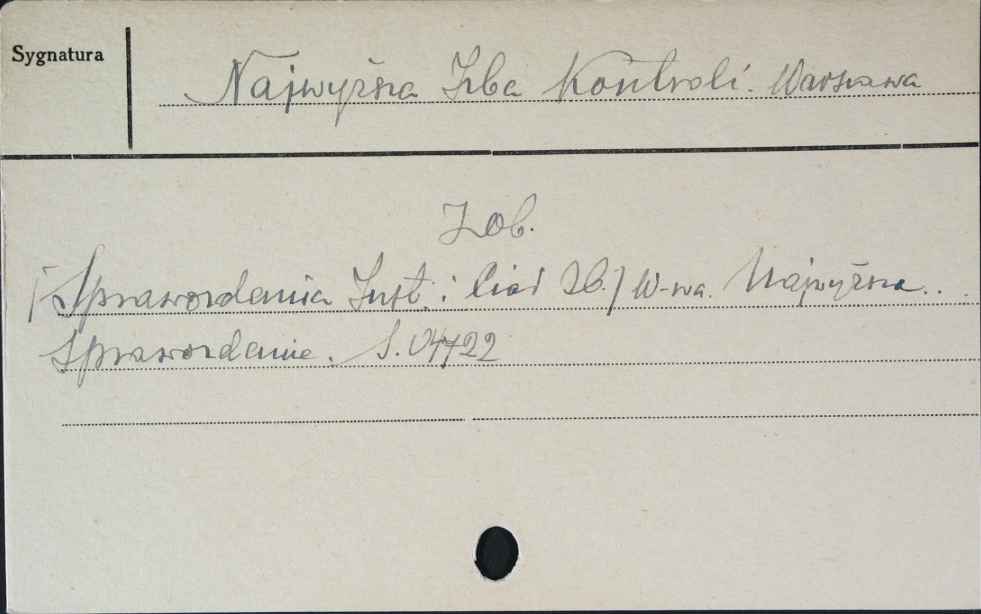 Sygnatura
Najwyższa Izba Kontroli. Warszawa
Zob.
[Sprawozdania Inst. i Ciał Zb.] W-wa. Najwyższa...
Sprawozdanie. S. 04722